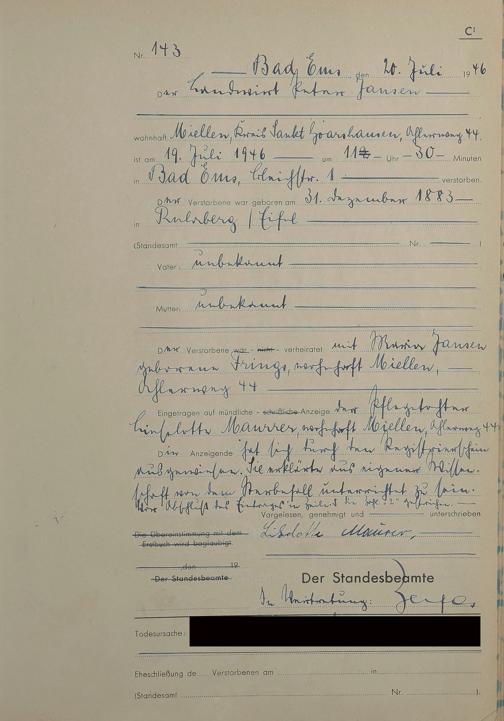 C¹
Nr. 143
Bad Ems, den 20. Juli 1946
Der Landwirt Peter Jansen
wohnhaft Miellen, Kreis Sankt Goarshausen, Ahlerweg 44
ist am 19. Juli 1946 um 11 Uhr 30 Minuten
in Bad Ems, Bleichstr. 1 verstorben.
Der Verstorbene war geboren am 31. Dezember 1883
in / Eifel
(Standesamt Nr. )
Vater: unbekannt
Mutter: unbekannt
Der Verstorbene war - nicht - verheiratet mit Maria Jansen
geborene Frings, wohnhaft Miellen,
Ahlerweg 44
Eingetragen auf mündliche - schriftliche Anzeige der Pflegetochter
Lieselotte Maurer, wohnhaft Miellen, Ahlerweg 44.
Die Anzeigende hat sich durch den Registrierschein
ausgewiesen. Sie erklärte aus eigener Wissen-
schaft von dem Sterbefall unterrichtet zu sein.
Vor Abschluß des Eintrages in
Vorgelesen, genehmigt und unterschrieben
Die Übereinstimmung mit dem
Erstbuch wird beglaubigt.
Liselotte Maurer,
, den 19
Der Standesbeamte
Der Standesbeamte
In Vertretung:
Todesursache:
Eheschließung de Verstorbenen am in
(Standesamt Nr. ).